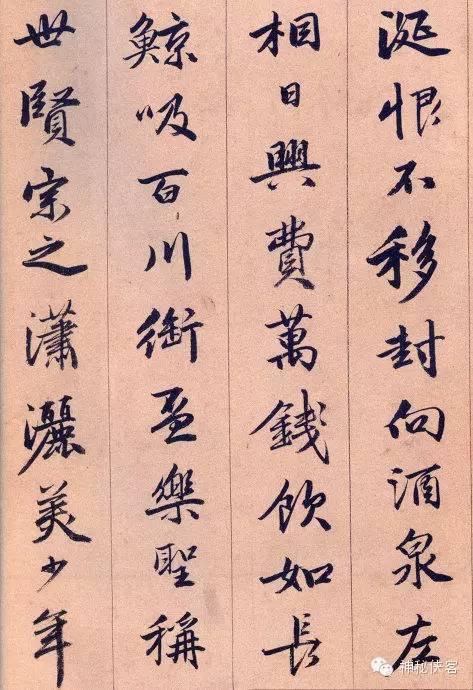 涎恨不移封向酒泉左
相日興費萬錢飲如長
鯨吸百川銜盃樂聖稱
世賢宗之瀟灑美少年
神秘侠客